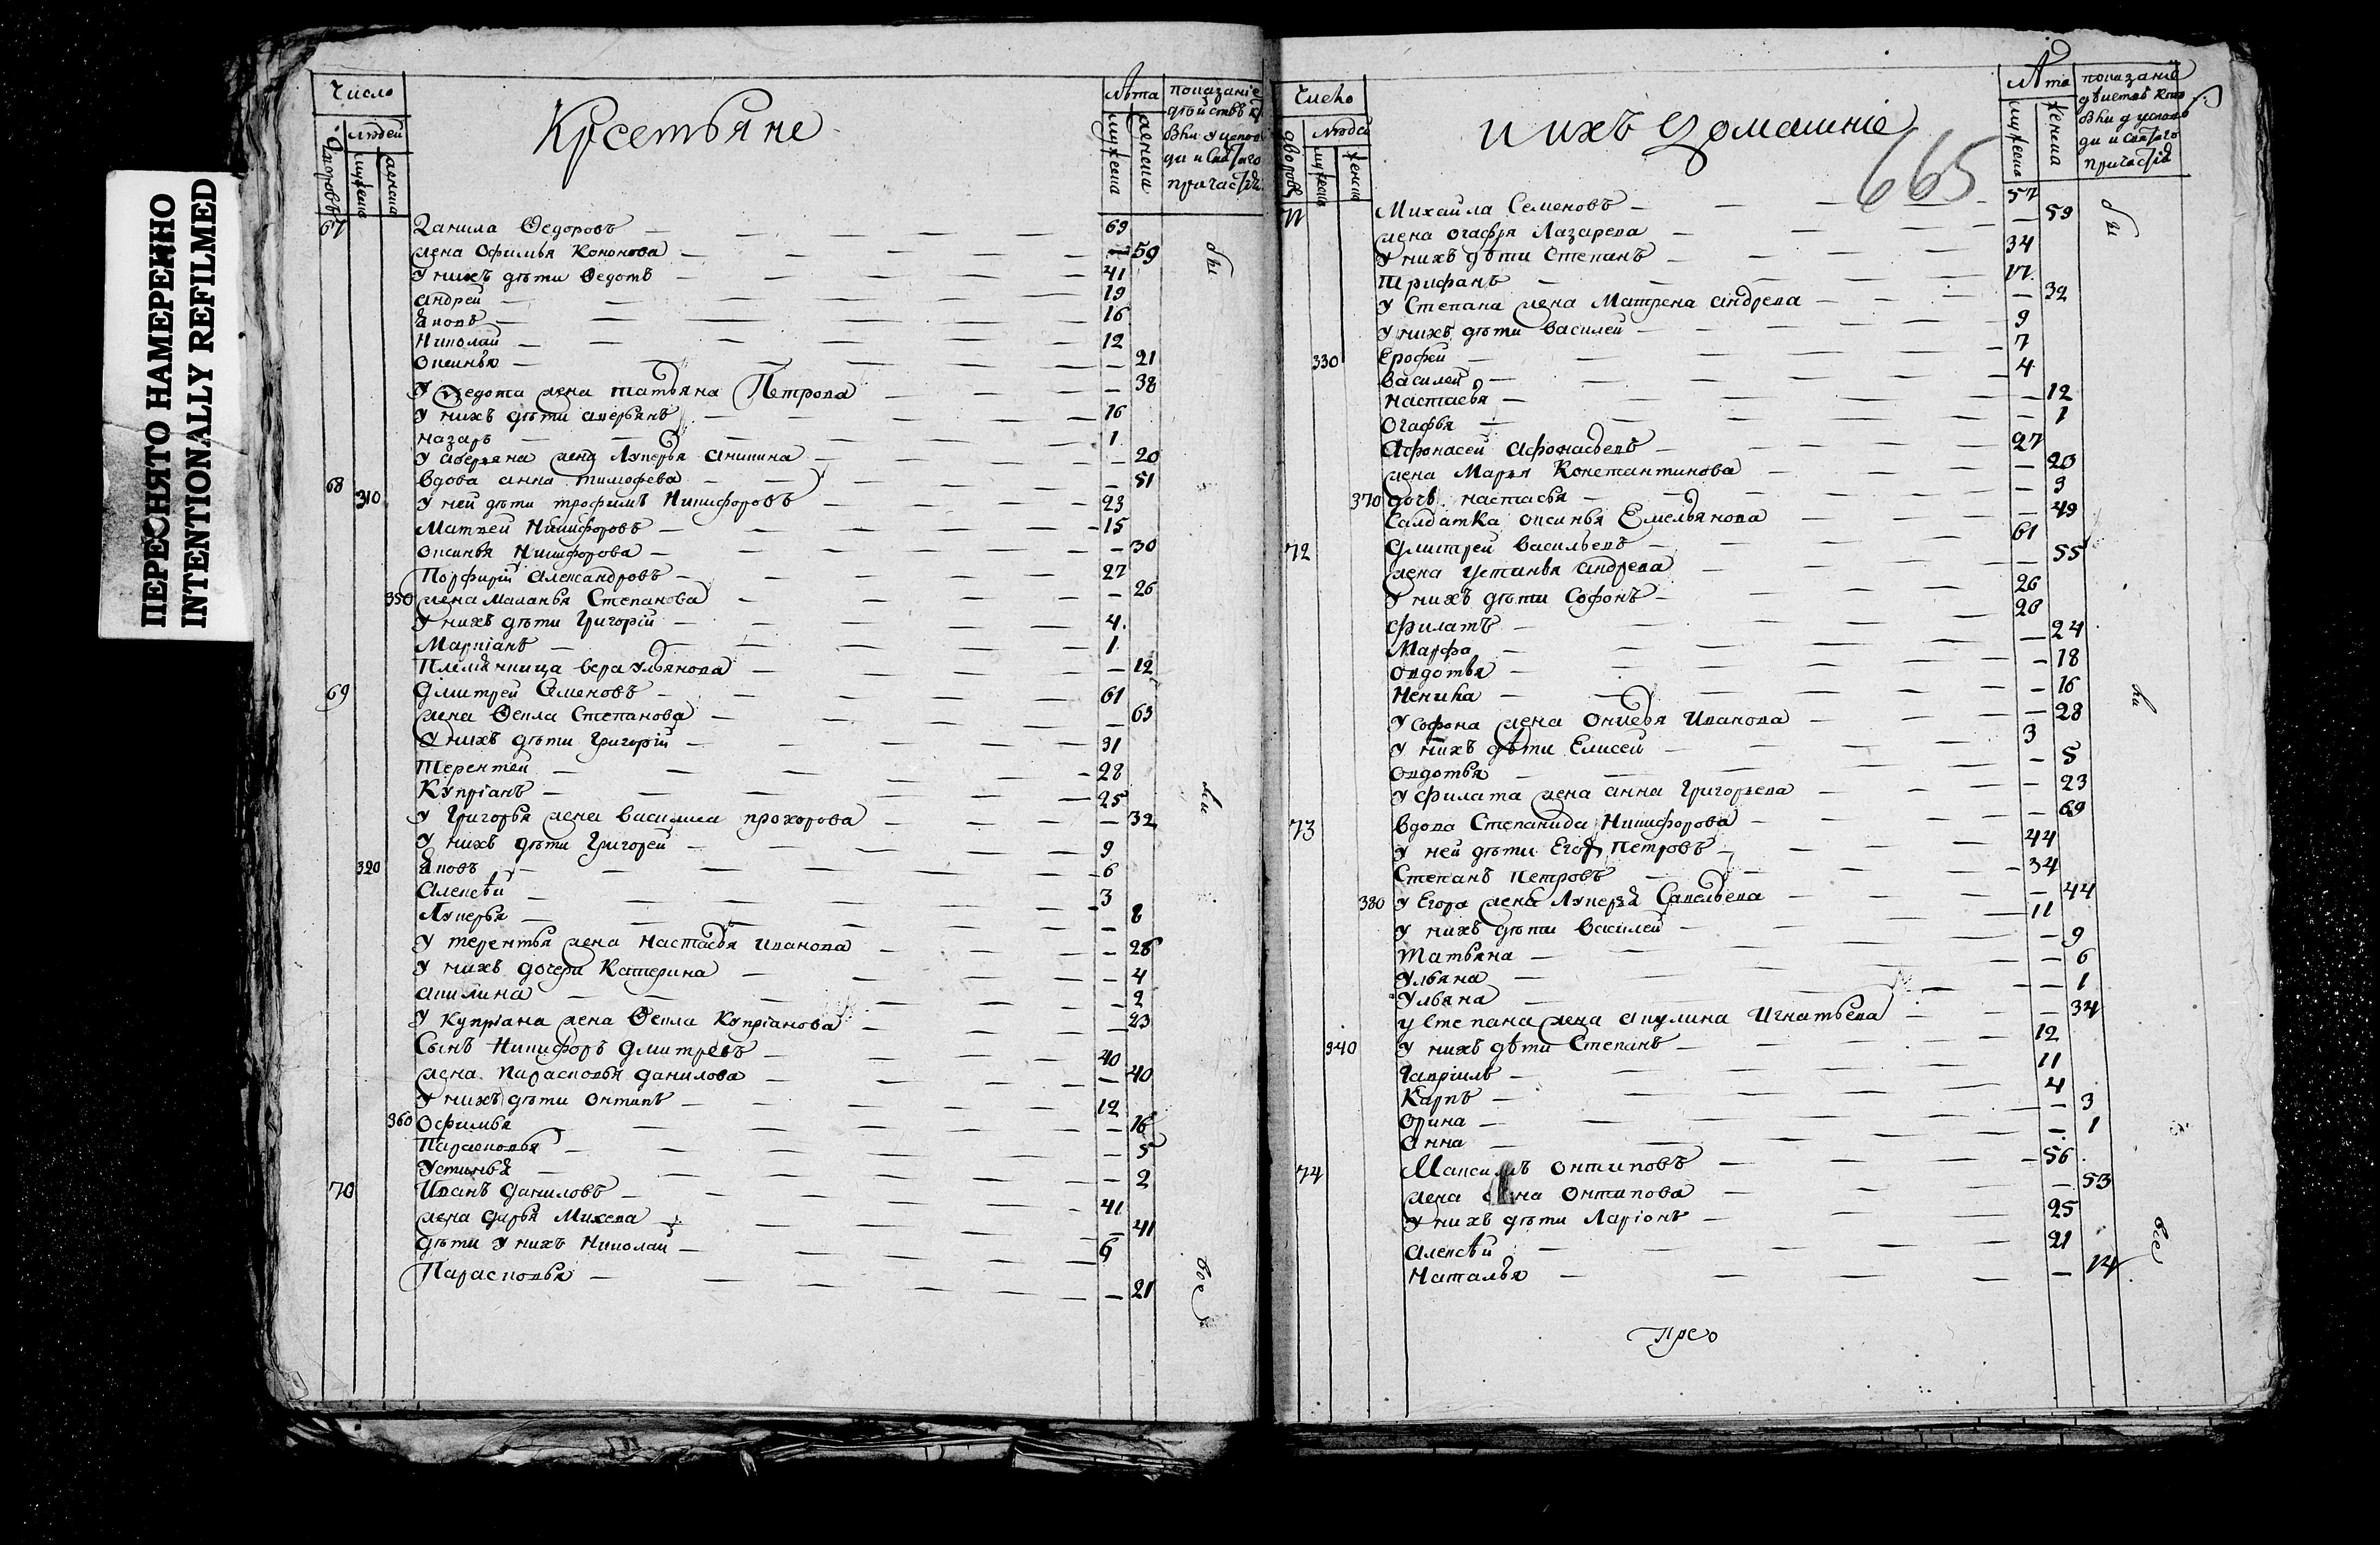 ПЕРЕСНЯТО НАМЕРЕННО
INTENTIONALLY REFILMED
Число
людей
дворовъ
мужеска
женска
Крестьяне
Лѣта
мужеска
женска
показаніе
кто
былъ у исповѣ
ди и святаго
причастія
67 Данила Ѳедоровъ 69
жена Офимья Кононова 59
У нихъ дѣти Ѳедотъ 41
андрей 19
Яковъ 16
Николай 12
Оксинья 21
У Ѳедота жена татьяна Петрова 38
У нихъ дѣти аверьянъ 16
назаръ 1
У аверьяна жена Лукерья Аникина 20
68 вдова анна тимофеева 51
310 У ней дѣти трофимъ Никифоровъ 23
Матвей Никифоровъ 15
оксинья Никифорова 30
Порфирій александровъ 27
350 жена Маланья Степанова 26
У нихъ дѣти Григорій 4
Маркіанъ 1
Племянница вера Ульянова 12
69 Дмитрей Семеновъ 61
жена Ѳекла Степанова 63
У нихъ дѣти Григорій 31
Терентей 28
Купріанъ 25
У Григорья жена василиса прохорова 32
У нихъ дѣти Григорей 9
320 Яковъ 6
Алексѣй 3
Лукерья 8
У терентья жена настасья иванова 28
У нихъ дочери Катерина 4
акилина 2
У Купріана жена Ѳекла Купріанова 23
Сынъ Никифоръ Дмитревъ 40
жена Парасковья данилова 40
У нихъ дѣти Онтипъ 12
360 Офимья 16
Парасковья 5
Устинья 2
70 Иванъ даниловъ 41
жена дарья Михеева 41
дѣти У нихъ Николай 6
Парасковья 21
бы
ли
все
Число
людей
дворовъ
мужеска
женска
и ихъ домашніе
665
Лѣта
мужеска
женска
показаніе
былъ у исповѣ
ди и святаго
причастія
71 Михайла Семеновъ 57
жена огафья Лазарева 59
У нихъ дѣти Степанъ 34
Трифанъ 17
У Степана жена Матрена андреева 32
У нихъ дѣти василей 9
330 Ерофей 7
василей 4
настасья 12
Огафья 1
Афонасей Афонасьевъ 27
жена Марья Константинова 20
370 дочь настасья 3
Салдатка оксинья Емельянова 49
72 Дмитрей васильевъ 61
жена Устинья андреева 55
У нихъ дѣти Софонъ 26
Филатъ 20
Марфа 24
овдотья 18
Ненила 16
У софона жена Онисья Иванова 28
У нихъ дѣти Елисей 3
Овдотья 5
У филата жена анна Григорьева 23
73 вдова Степанида Никифорова 69
У ней дѣти Егоръ Петровъ 44
Степанъ Петровъ 34
380 У Егора жена Лукерья Савельева 44
У нихъ дѣти василей 11
Татьяна 9
Ульяна 6
Ульяна 1
У Степана жена акулина Игнатьева 34
340 У нихъ дѣти Степанъ 12
Гавріилъ 11
Карпъ 4
Орина 3
Анна 1
74 Максимъ онтиповъ 56
жена Онтипова 53
У нихъ дѣти Ларіонъ 25
алексѣй 21
Наталья 14
бы
ли
все
прео